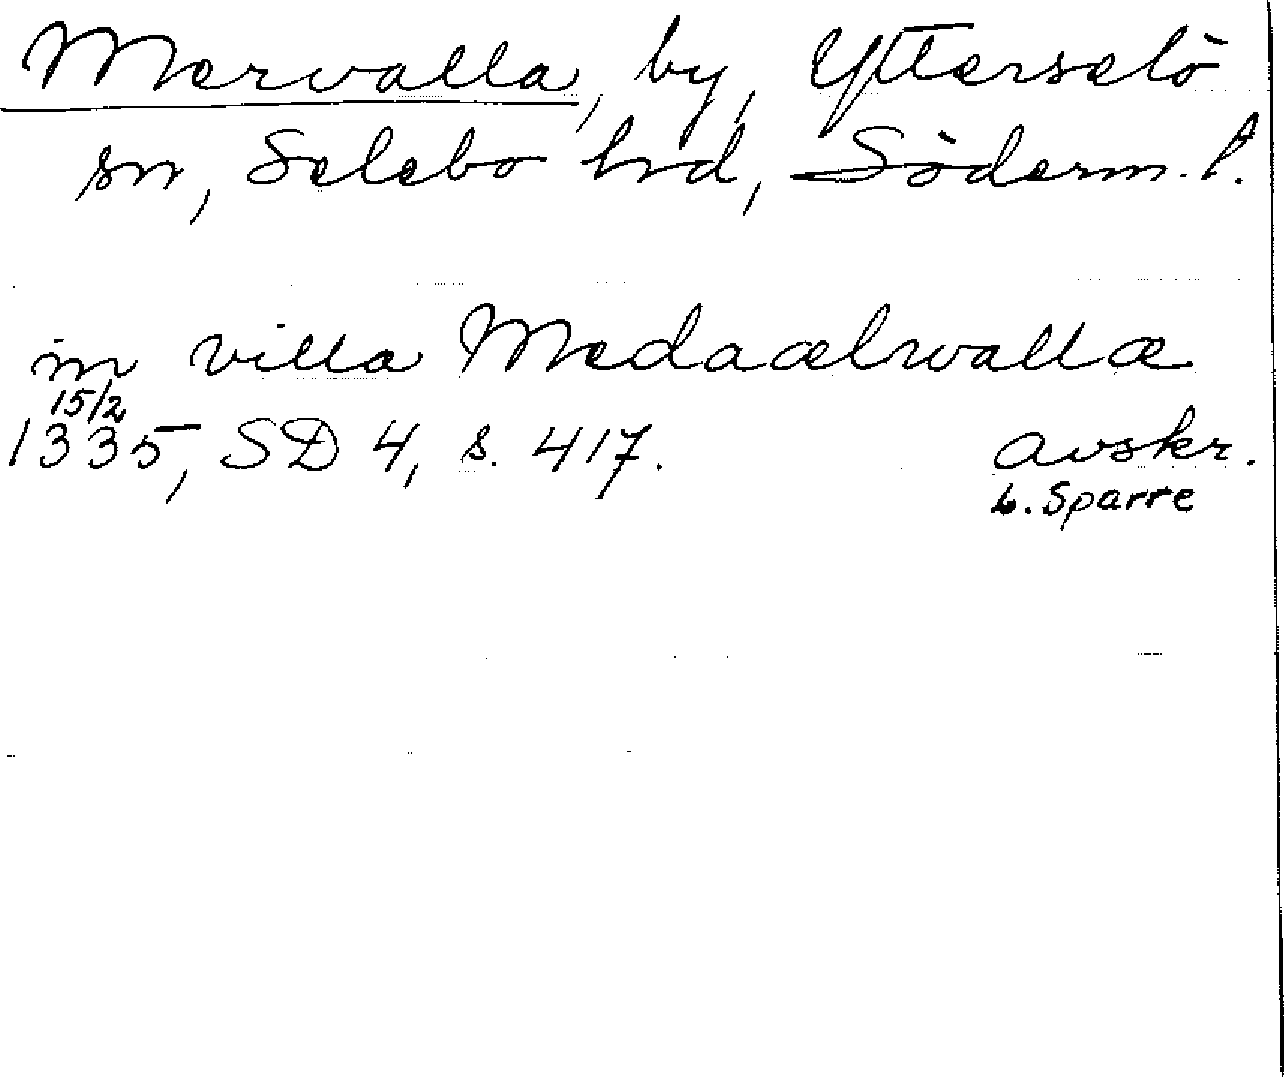 Mervalla, by, Ytterselö
sn, Selebo hrd, Söderm. l.
in villa Medaælwallæ
15/2
1335, SD 4, s. 417. avskr.
b. Sparre